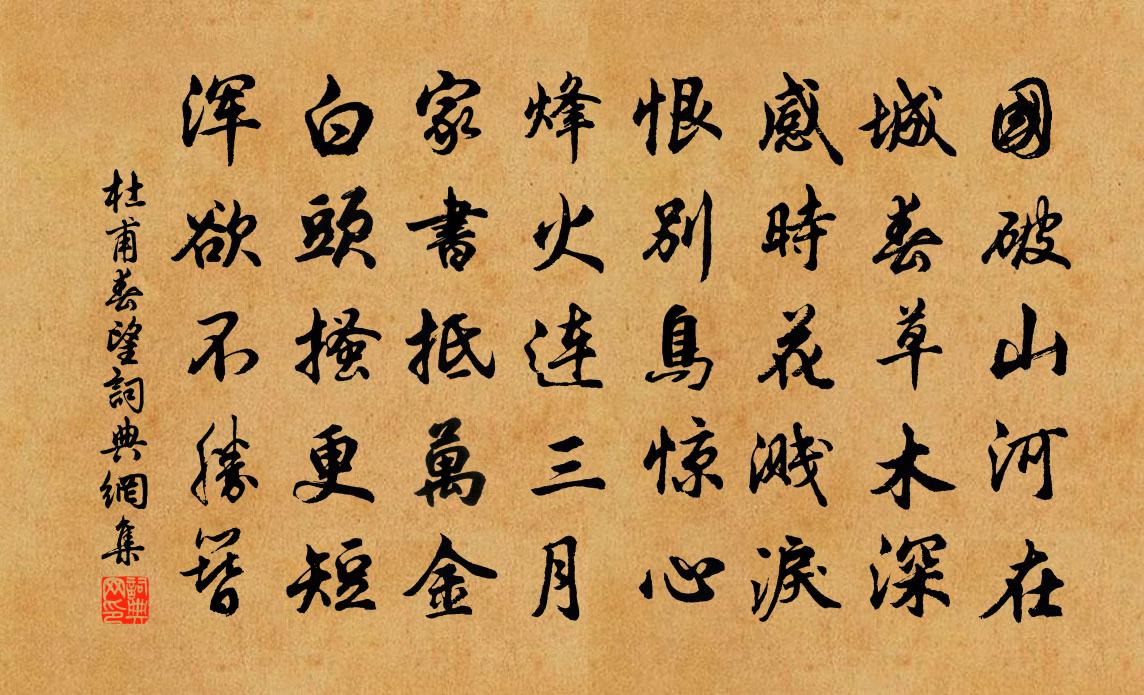 國破山河在
城春草木深
感時花濺淚
恨別鳥惊心
烽火连三月
家書抵萬金
白頭搔更短
浑欲不勝簪
杜甫春望詞典網集
詞典网印